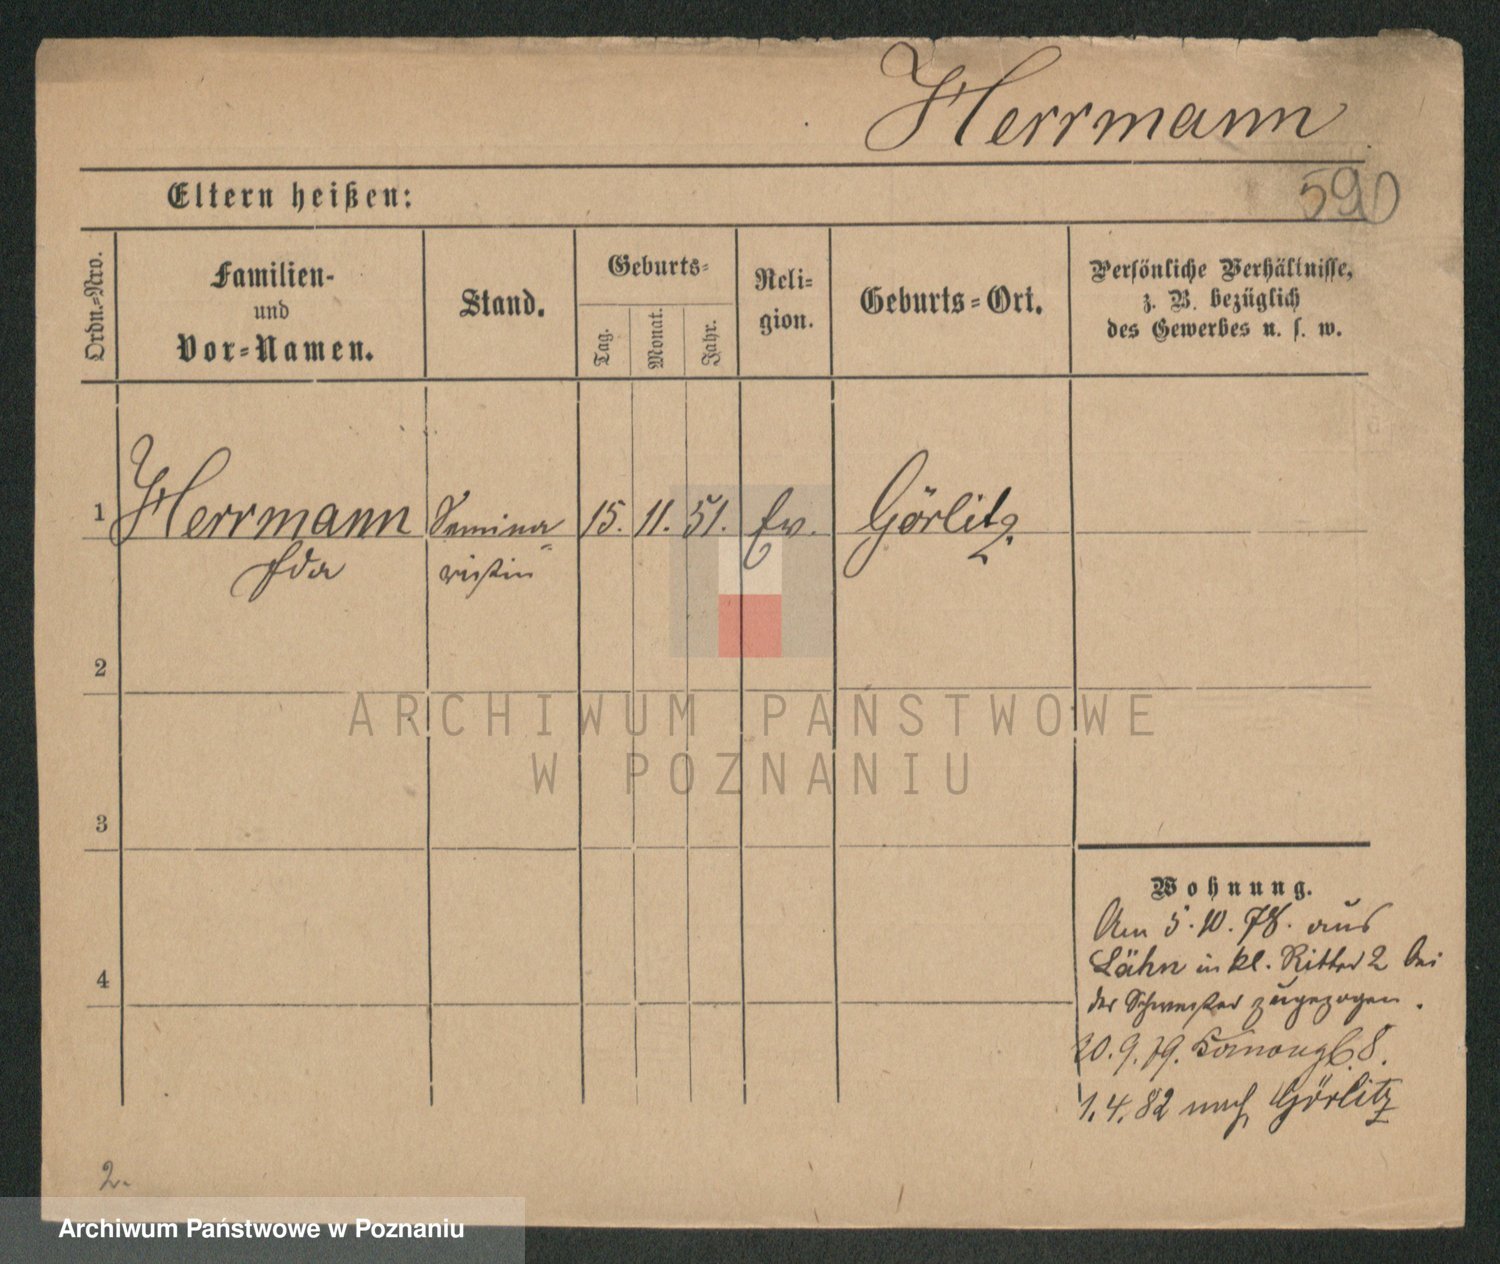 Herrmann
590
Eltern heißen:
Ordn.-Nro.
Familien-
und
Vor-Namen.
Stand.
Geburts-
Tag.
Monat.
Jahr.
Reli-
gion.
Geburts-Ort.
Persönliche Verhältnisse,
z. B. bezüglich
des Gewerbes u. s. w.
1 Herrmann Semina 15. 11. 51. Ev. Görlitz.
Ida ristin
2
3
4
Wohnung.
Am 5.10.78. aus
Lähn in kl. Ritter 2 bei
der Schwester zugezogen.
20.9.79. 8.
1.4.82 nach Görlitz
2.
ARCHIWUM PAŃSTWOWE
W POZNANIU
Archiwum Państwowe w Poznaniu